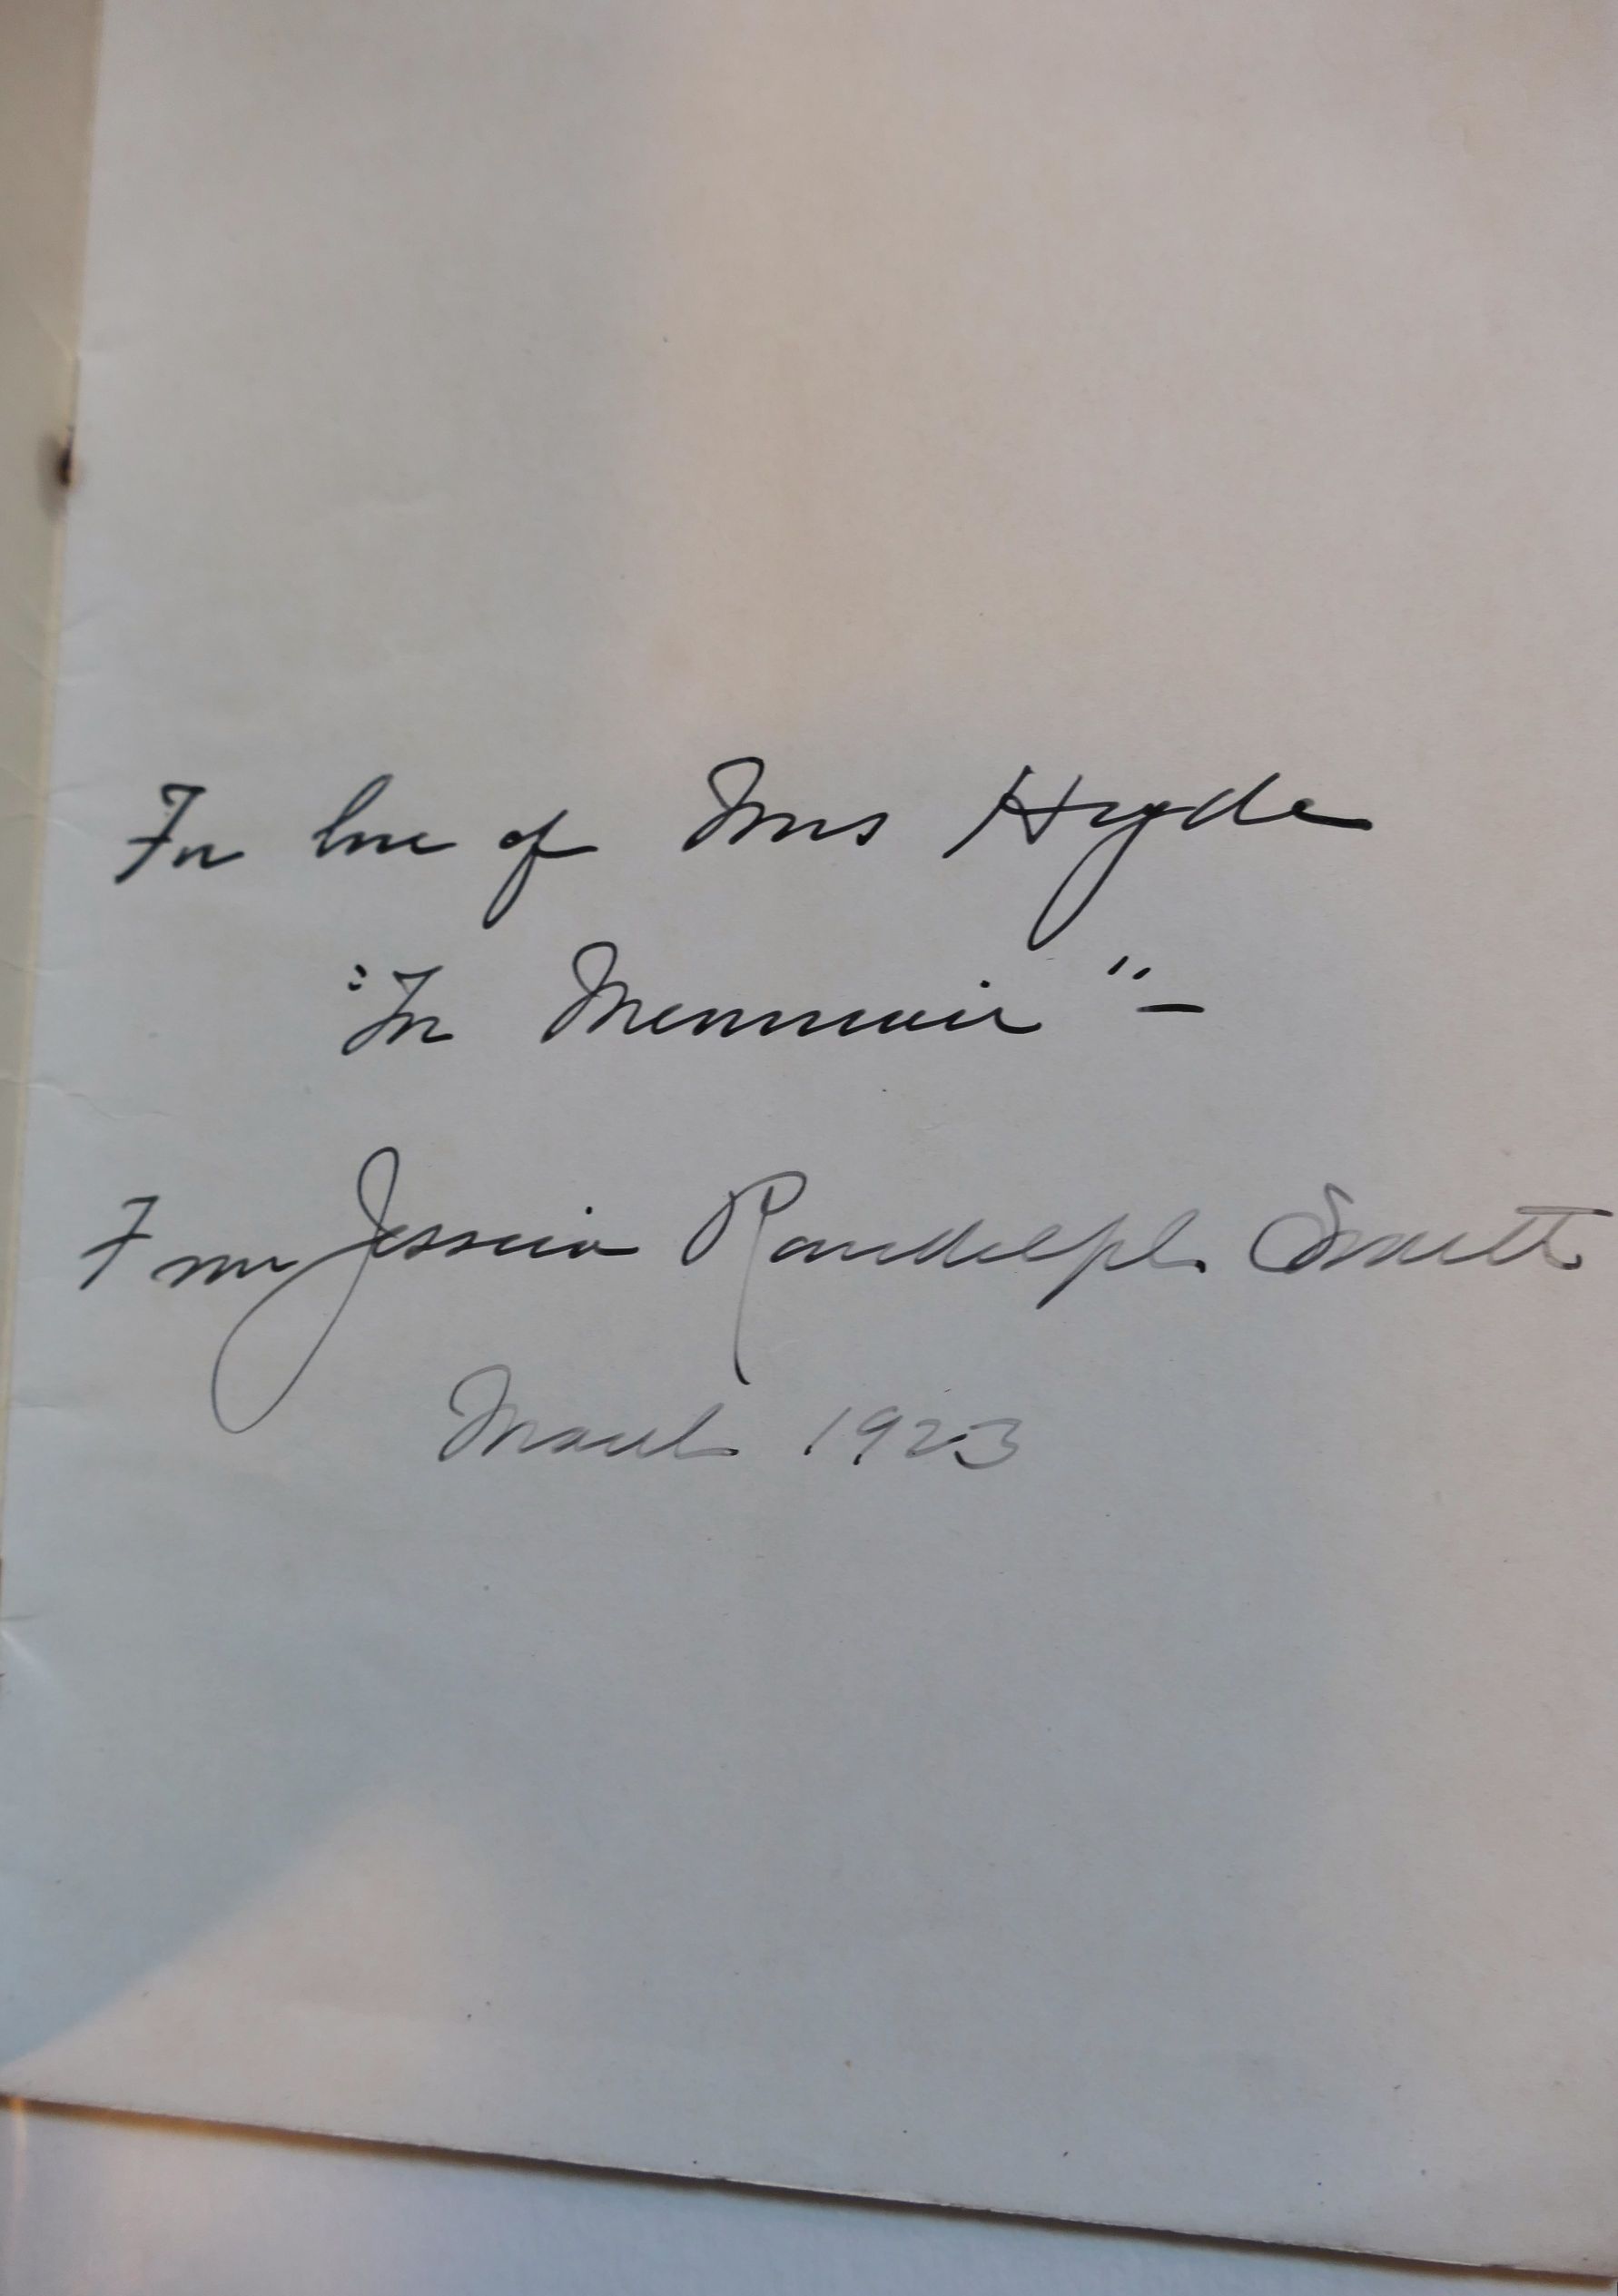 In love of Mrs Hyde
"In Memmoir" –
From Jessica Randolph Smith
March 1923